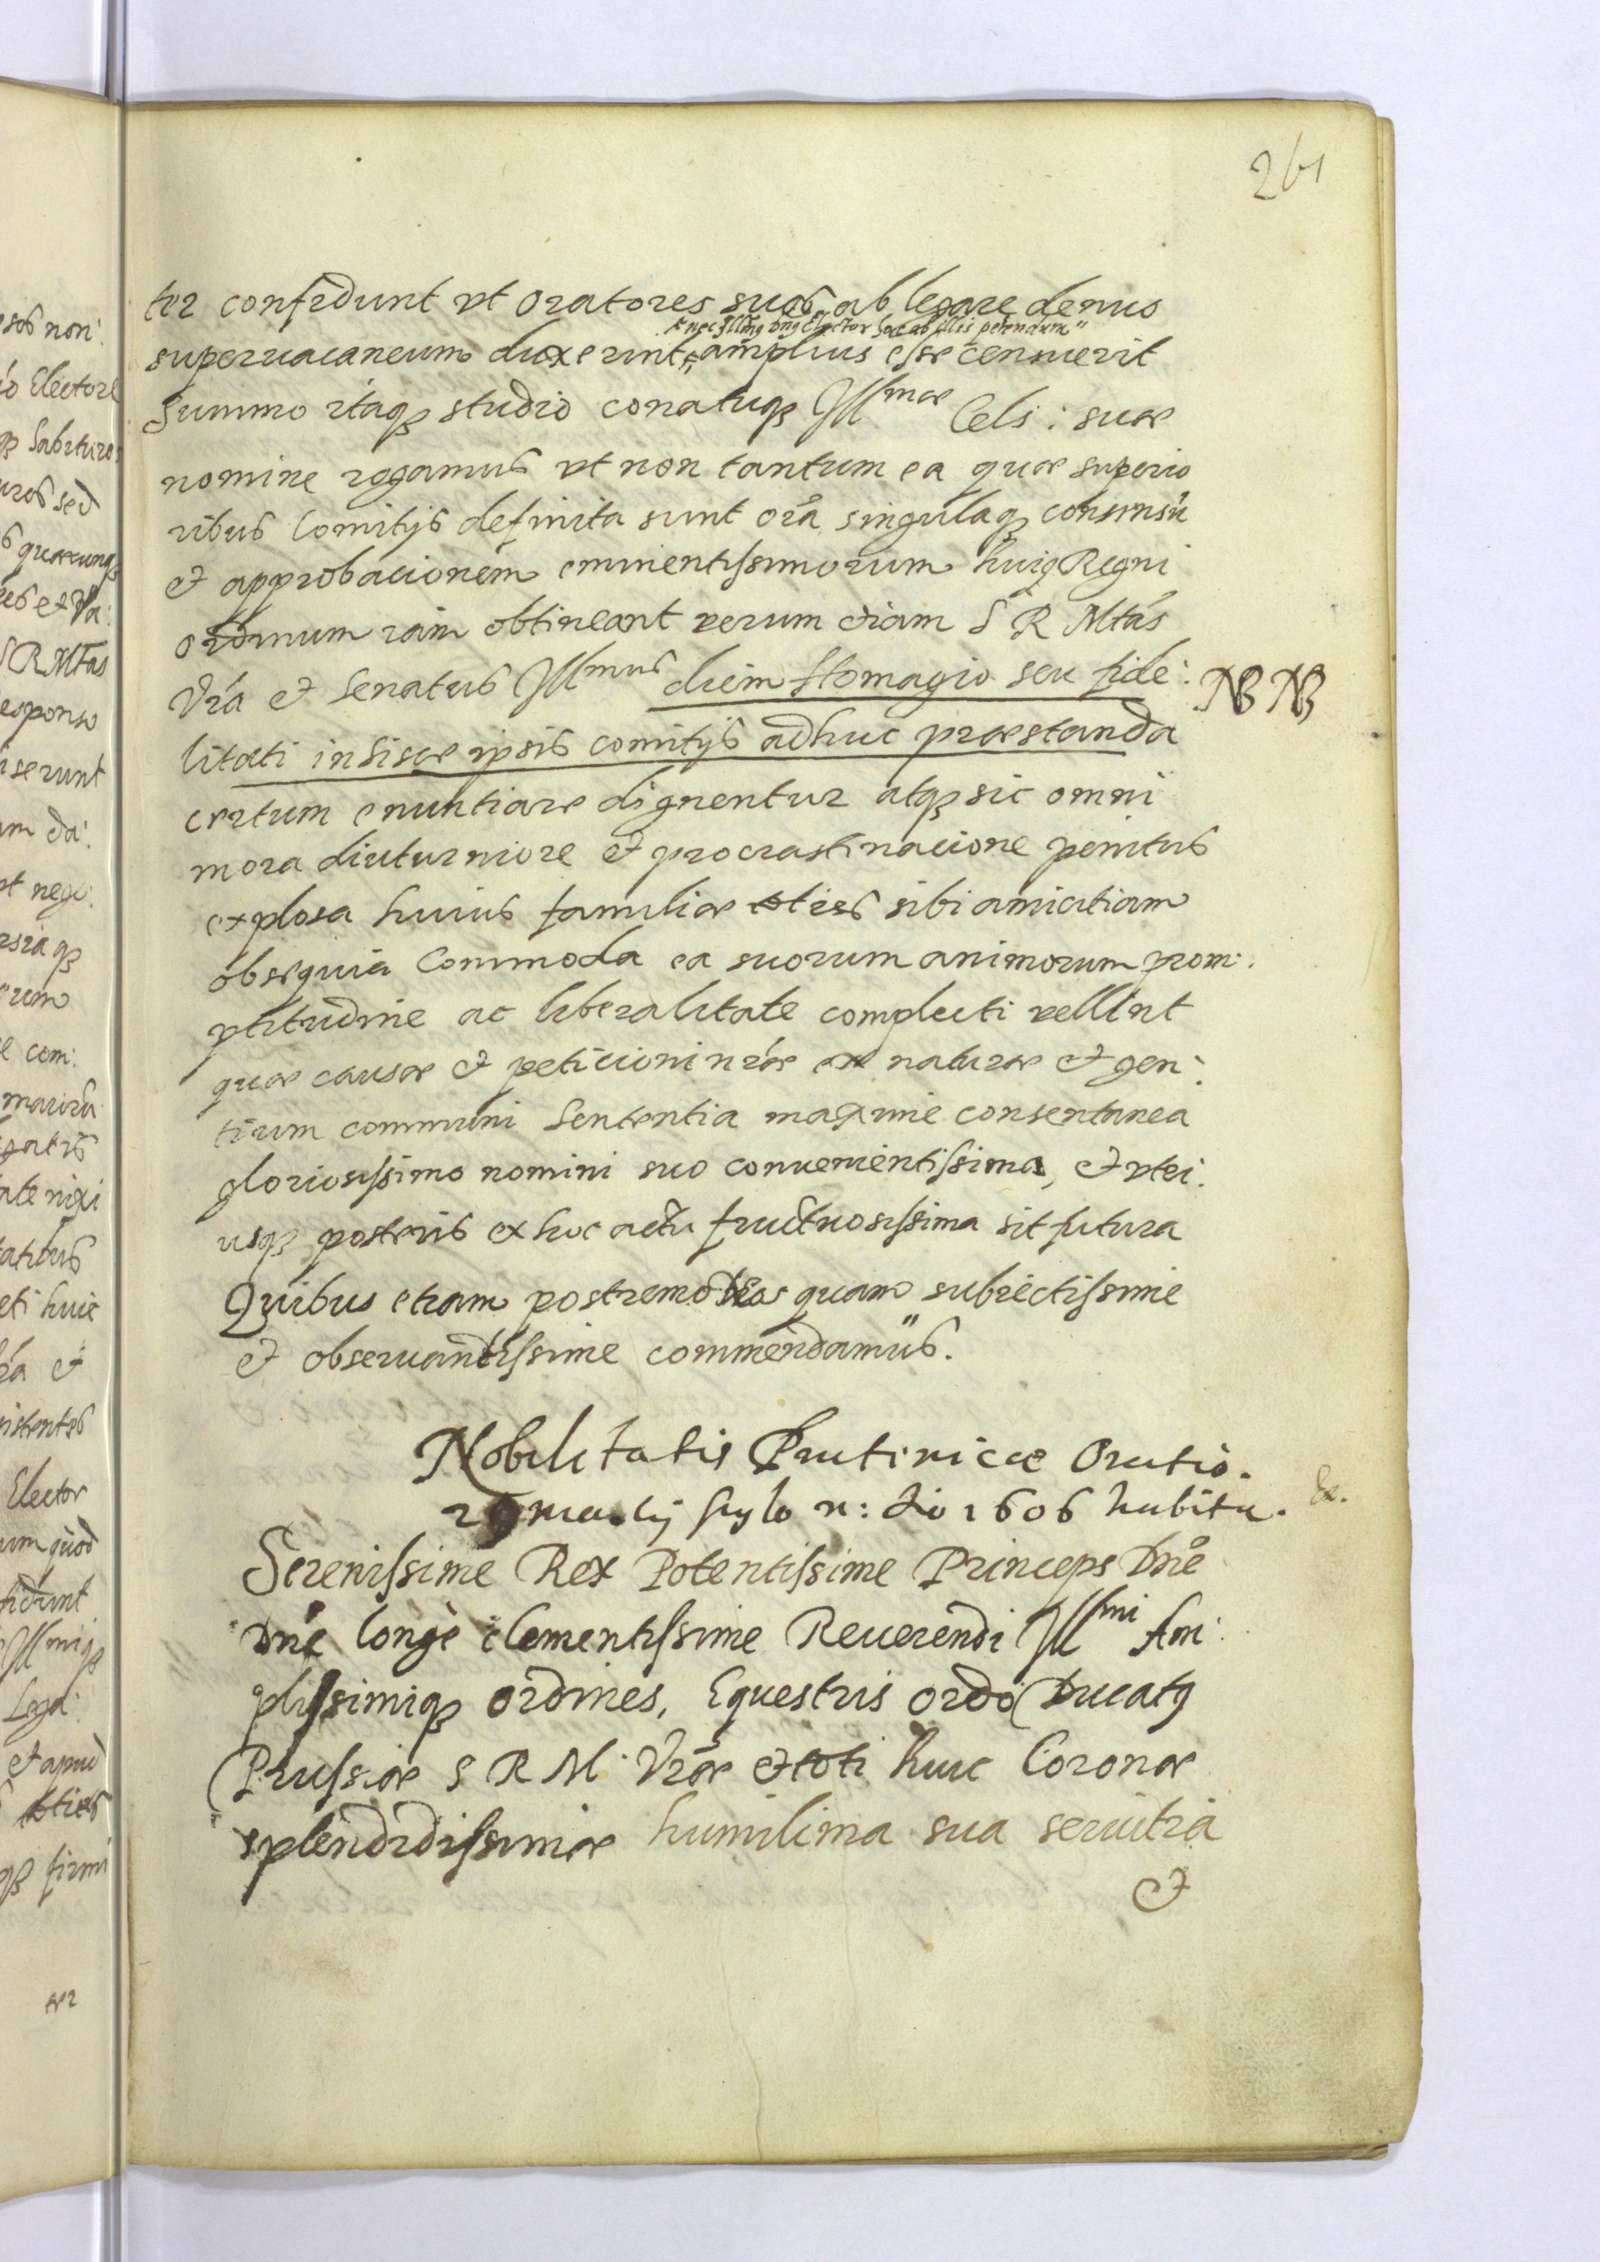 261
ter confidunt vt oratores suos ablegare denuo
et nec Illmus dns Elector hoc ab illis petendum
superuacaneum duxerint, amplius esse censuerit
Summo itaqz studio conatuqz Illmae Cels: suae
nomine rogamus vt non tantum ea quae superio
ribus Comitijs definita sunt oīa singulaqz consensū
et approbacionem eminentissimorum huiq Regni
ordinum iam obtineant verum etiam S R Mtás
Vrá et Senatus Illmus diem Homagio seu fide:
NB NB
litati in hisce ipsis comitijs adhuc praestanda
certum enuntiare dignentur atqz sic omni
mora diuturniore et procrastinacione penitus
explosa huius familiae toties sibi amicitiam
obsequia Commoda ea suorum animorum prom:
ptitudine ac liberalitate complecti vellint
quae causae et peticioni nráe ex naturae et gen:
tium communi Sententia maxime consentanea
gloriosissimo nomini suo conuenientissima, et vtri:
usqz posteris ex hoc actu fructuosissima sit futura
Quibus etiam postremo Nos quam subiectissime
et obseruandissime commendamus.
Nobilitatis Prutenicae Oratio.
29 Martij stylo n: Ao 1606 habita. &.
Serenissime Rex Potentissime Princeps Dnē
Dnē longè clementissime Reuerendi Illmi Am:
plissimiqz ordines, Equestris ordo Ducatq
Prussiae S R M Vráe et toti huic Coronae
splendidissimae humilima sua seruitia
et